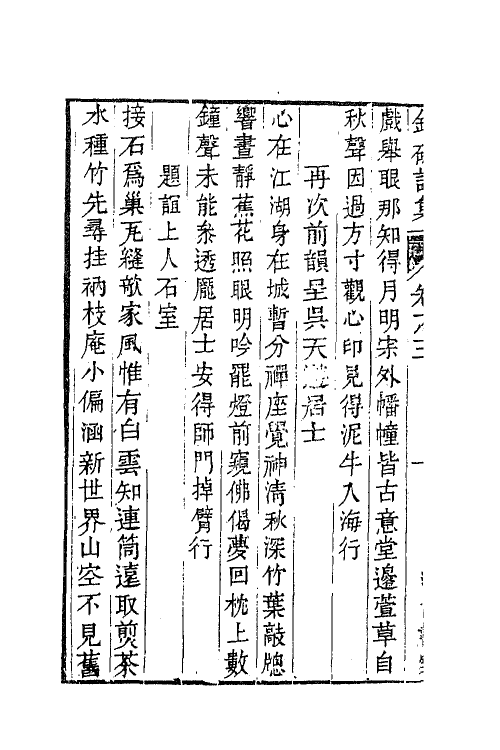 戲舉眼那知得月明宋外幡幢皆古意堂邊萱草自
秋聲因過方寸觀心印見得泥牛入海行
再次前韻呈吳天遊居士
心在江湖身在城暫分禪座覺神清秋深竹葉敲牕
響晝靜蕉花照眼明吟罷燈前窺佛偈夢回枕上數
鐘聲未能叅透龐居士安得師門掉臂行
題誼上人石室
接石爲巢瓦縫欹家風惟有白雲知連筒遠取煎茶
水種竹先尋挂衲枝庵小偏涵新世界山空不見舊